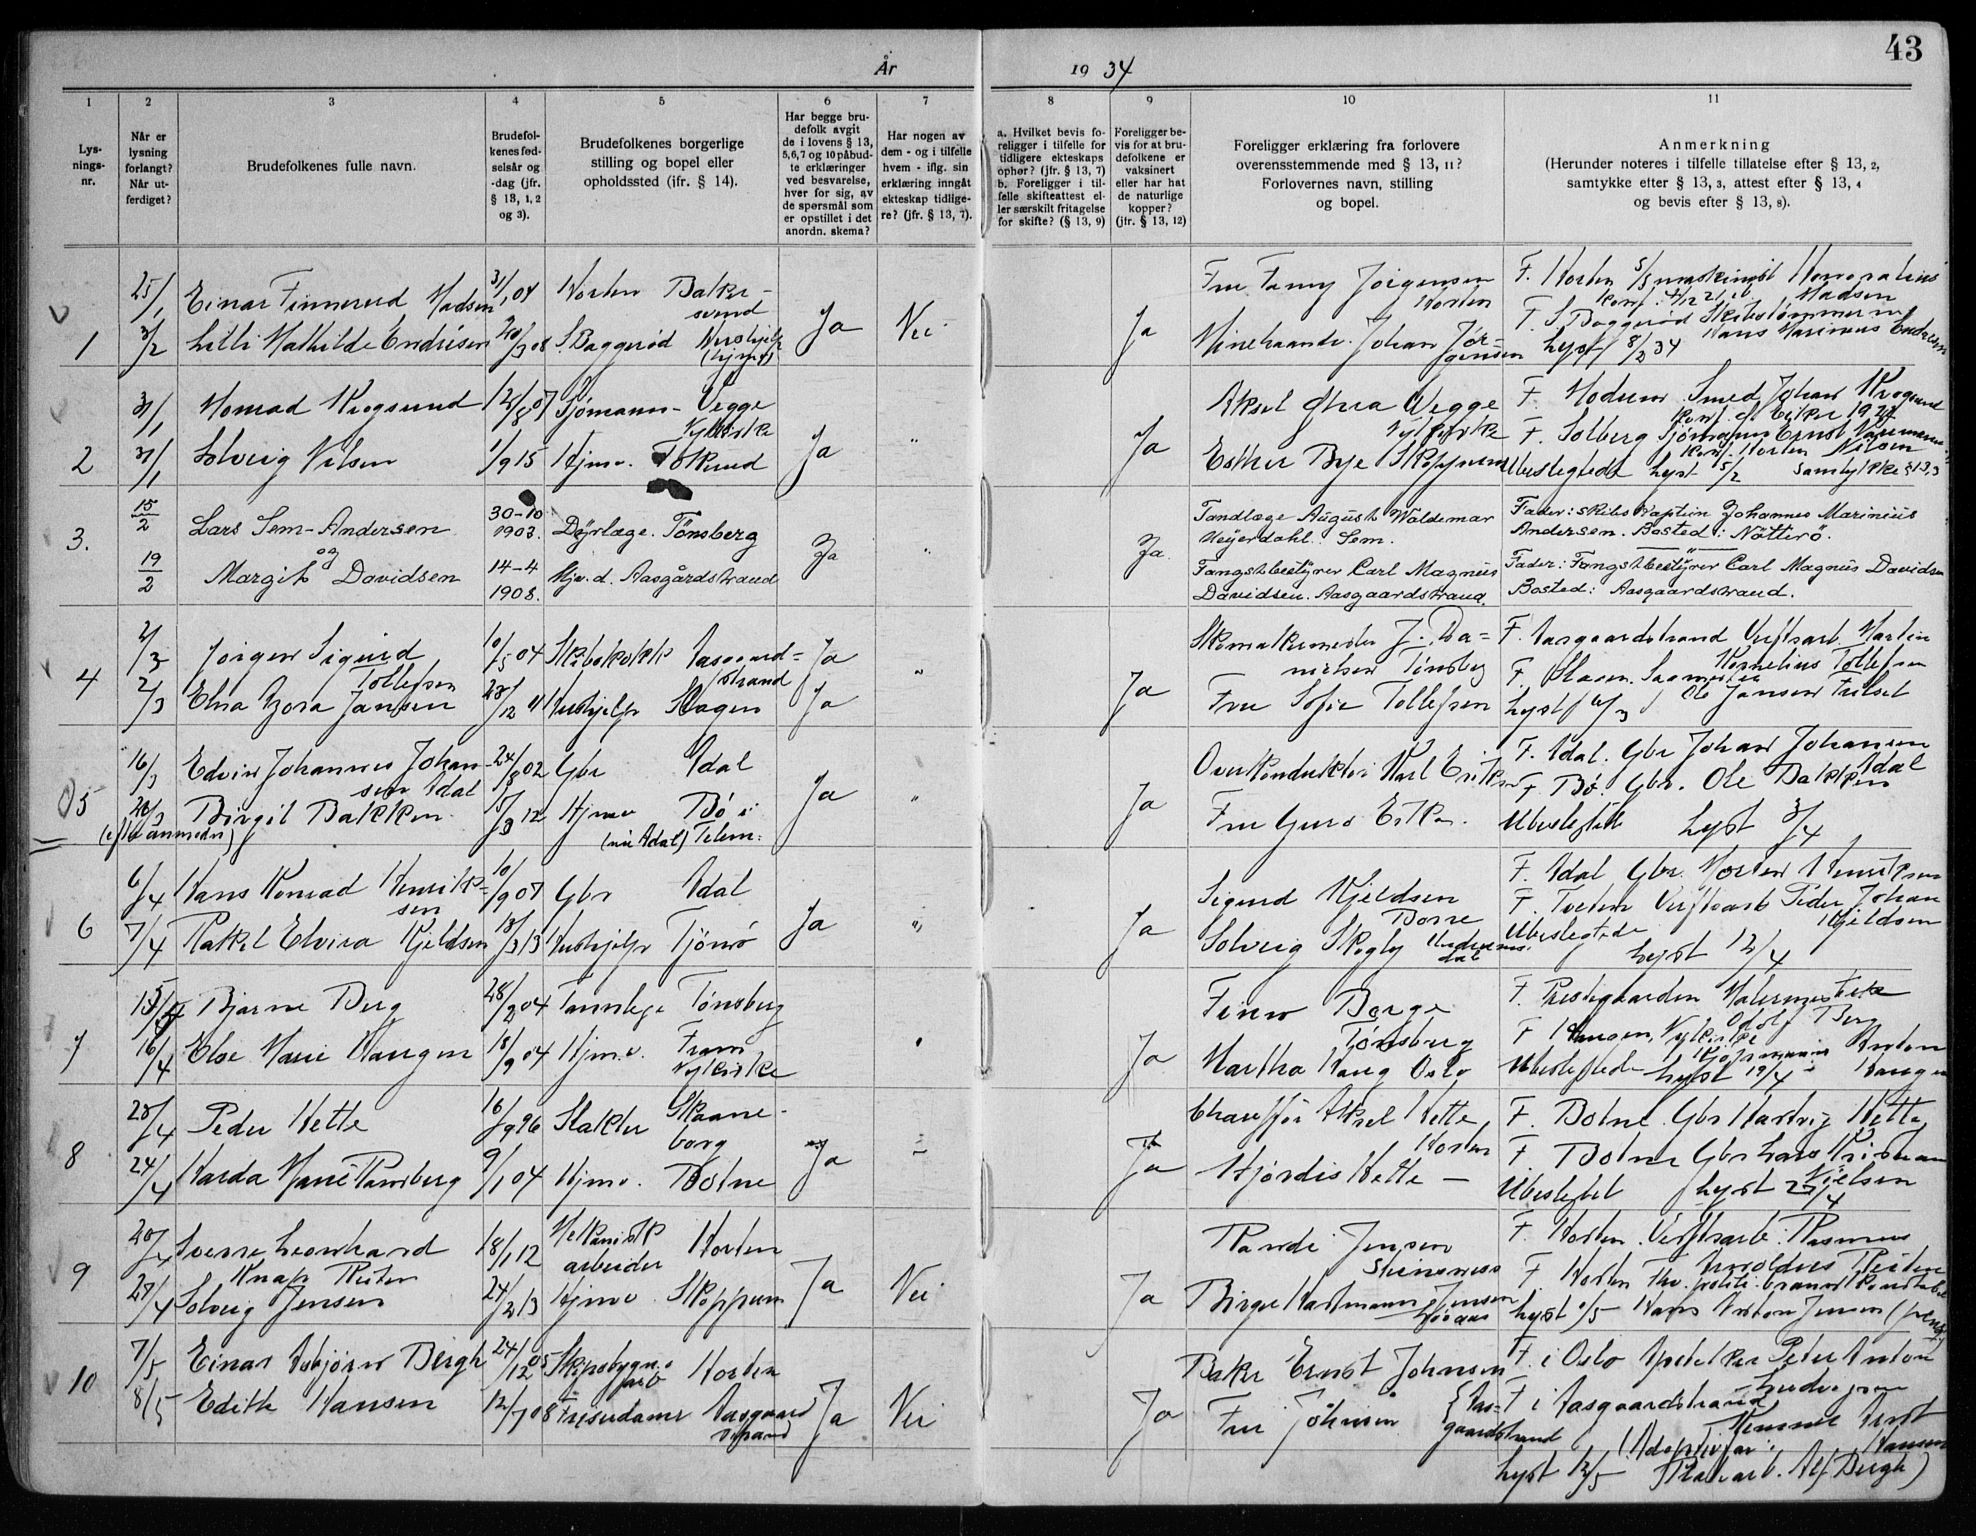 43
År 19 34
1 2 3 4 5 6 7 8 9 10 11
Lys-
nings-
nr.
Når er
lysning
forlangt?
Når ut-
ferdiget?
Brudefolkenes fulle navn.
Brudefol-
kenes fød-
selsår og
-dag (jfr.
§ 13, 1, 2
og 3).
Brudefolkenes borgerlige
stilling og bopel eller
opholdssted (jfr. § 14).
Har begge bru-
defolk avgit
de i lovens § 13,
5,6,7 og 10 påbud-
te erklæringer
ved besvarelse,
hver for sig, av
de spørsmål som
er opstillet i det
anordn. skema?
Har nogen av
dem - og i tilfelle
hvem - iflg. sin
erklæring inngåt
ekteskap tidlige-
re? (jfr. § 13, 7).
a. Hvilket bevis fo-
religger i tilfelle for
tidligere ekteskaps
ophør? (jfr. § 13, 7)
b. Foreligger i til-
felle skifteattest el-
ler særskilt fritagelse
for skifte? (§ 13, 9)
Foreligger be-
vis for at bru-
defolkene er
vaksinert
eller har hat
de naturlige
kopper?
(jfr. § 13, 12)
Foreligger erklæring fra forlovere
overensstemmende med § 13, 11?
Forlovernes navn, stilling
og bopel.
Anmerkning
(Herunder noteres i tilfelle tillatelse efter § 13, 2,
samtykke efter § 13, 3, attest efter § 13, 4
og bevis efter § 13, 8).
1
25/1 Einar Finnerud Madsen 31/1 04 Horten Baker-
svend
3/2 Lilli Mathilde Endresen 20/3 08 S. Baggerød
Ja Nei Ja
Fru Fanny Jørgensen
Horten
Johan Jør-
gensen
F. Horten
Madsen
F. S. Baggerød
Hans Marinus Endresen
Lyst 8/2 34
2
31/1 Konrad Krogsrud 12/8 07 Sjømann Vegge
Nykirke
31/1 Solveig Nilsen 1/9 15 Hjmv. Falkerud
Ja " Ja
Aksel Vegge
Nykirke
Esther Bye Skoppum
F. Modum Smed Johan Krogsrud
F. Solberg Sjømann Ernst
Nilsen
Ubeslegtede Lyst 5/2 Samtykke § 13,3
3.
15/2 Lars Sem-Andersen 30-10
1903. Dyrlæge. Tönsberg
og
19/2 Margit Davidsen 14-4
1908. Hjv. d. Aasgårdstrand
Ja " Ja
Tandlæge August Waldemar
Heyerdahl. Sem.
Fangstbestyrer Carl Magnus
Davidsen. Aasgaardstrand.
Fader: Skibskaptein Johannes Marinius
Andersen. Bosted: Nötterö.
Fader: Fangstbestyrer Carl Magnus Davidsen
Bosted: Aasgaardstrand.
4
2/3 Jørgen Sigurd
Tollefsen 10/5 04 Skibskokk Aasgaard-
strand
2/3 Elna Zora Jansen 28/12 11 Hushjelp Slagen
Ja
Ja
" Ja
Skomakermester J. Da-
nielsen Tønsberg
Fru Sofie Tollefsen
F. Aasgaardstrand Verftsarb. Martin
Kornelius Tollefsen
F. Slagen.
Ole Jansen
Lyst
5
16/3 Edvin Johannes Johan-
sen Adal 24/8 02 Gbr Adal
Birgit Bakken 12 Hjmv Bø i
(nu Adal) Telem.
Ja " Ja
Overkonduktør Karl Eriksen
Fru
F. Adal. Gbr Johan Johansen
Adal
F. Bø. Gbr. Ole Bakken
Ubeslegtede Lyst 3/4
6
6/4 Hans Konrad Henrik-
sen 10/9 07 Gbr Adal
7/4 Rakel Elvira Kjeldsen 13/3 13 Hushjelp Tjømø
Ja " Ja
Sigurd Kjeldsen
Borre
Solveig Skogly
F. Adal Gbr. Morten Henriksen
F. Tveten Verftsarb Peder Johan
Kjeldsen
Ubeslegtede
Lyst 12/4
7
Bjarne Berg 28/2 04 Tannlege Tønsberg
16/4 Else Marie Haugen 18/9 04 Hjmv. Fram
Nykirke
" Ja
Finn Borge
Tønsberg
Martha Haug Oslo
F. Prestegaarden Malermester
Adolf Berg
F. Haugen, Nykirke
Anton
Haugen
Ubeslegtede Lyst 19/4
8
20/4 Peder Hette 16/9 96 Slakter Skaane-
borg
24/4 Harda Marie Ramberg 9/1 04 Hjmv. Botne
Ja Ja
Chauffør Aksel Hette
Horten
Hjørdis Hette —
F. Botne Gbr Hartvig Hette
F. Botne Gbr Lars Kristian
Nielsen
Ubeslegtet Lyst 27/4
9
Sverre Leonhard
Knap Reiten 18/1 12 Mekanisk
arbeider Horten
27/4 Solveig Jensen 24/2 13 Hjmv Skoppum
Ja Nei Ja
Randi Jensen
Steinsnes
Birger Hartmann Jensen
F. Horten. Verftsarb. Rasmus
Arnoldus Reiten
F. Horten politi- brannkonstabel
Hans Anton Jensen
Lyst 1/5
10
7/5 Einar Asbjørn Bergh 24/12 05 Skipsbygn.
arb Horten
8/5 Edith Hansen 12/7 08 Friserdame Aasgaard
strand
Ja Nei Ja
Baker Ernst Johnsen
Fru Johnsen Aas-
gaardstrand
F. i Oslo Peter Anton
Ludvigsen
F. i Aasgaardstrand
Hansen
(Adoptivfar:
Lyst 12/5 Alf Bergh)